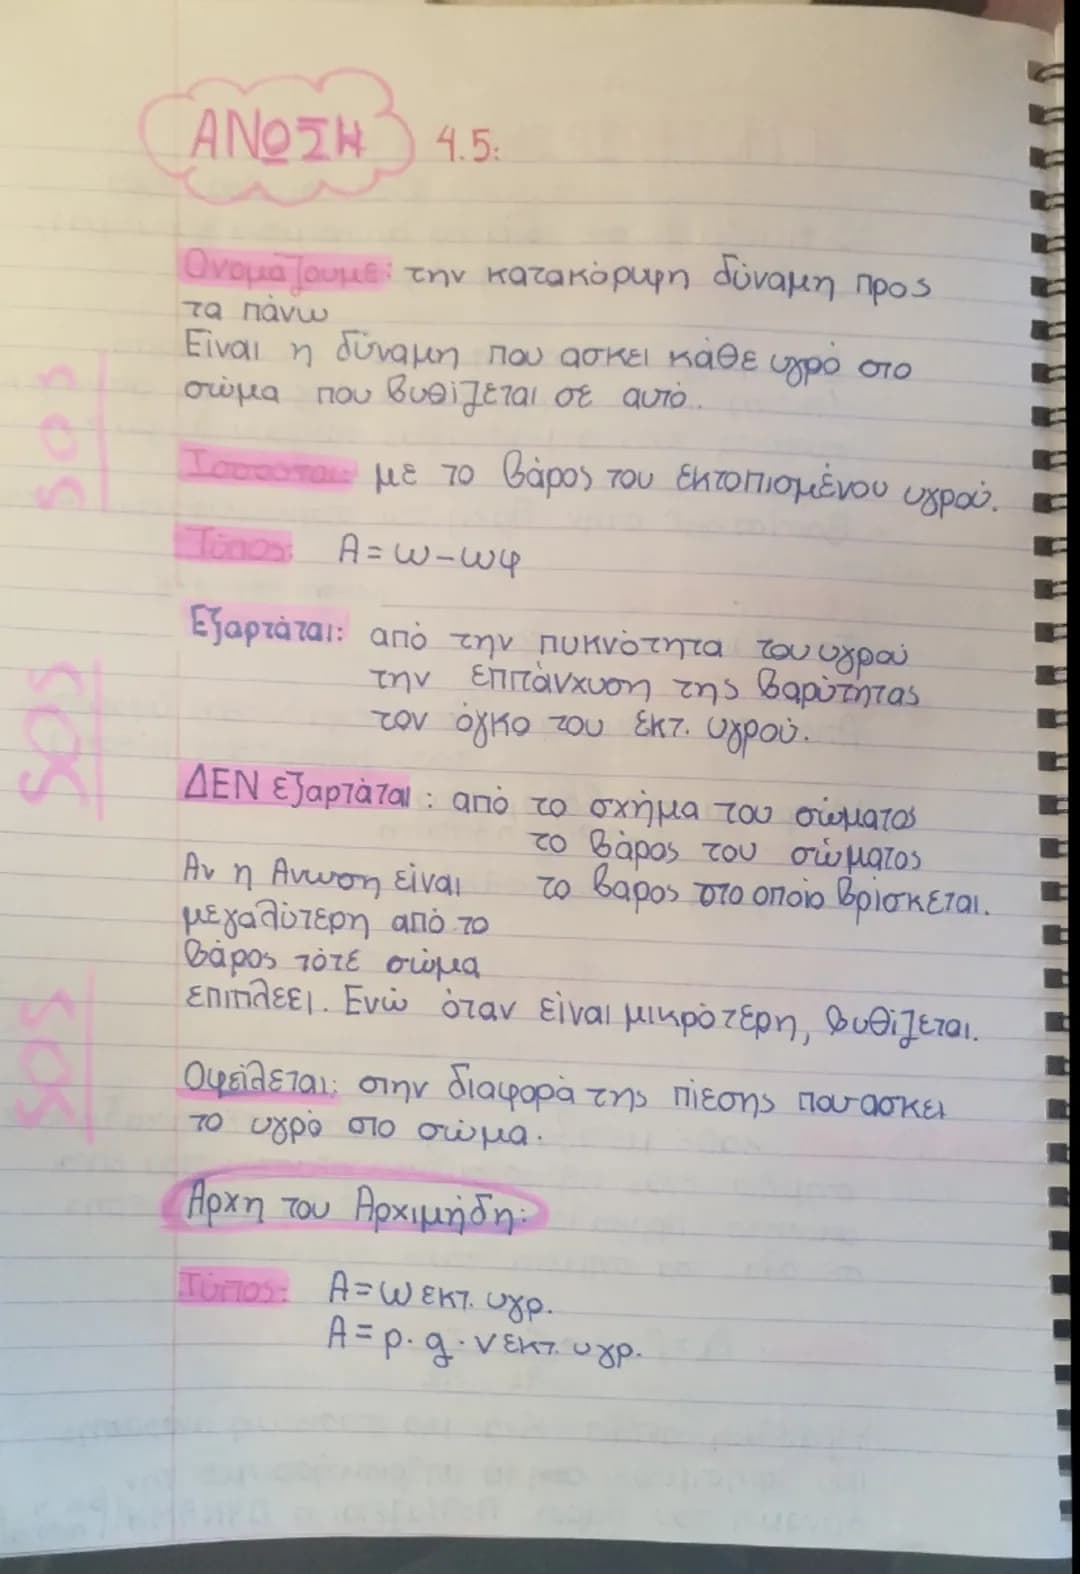 ΑΝΩΣΗ 4.5:
Ονομάζουμε: την κατακόρυφη δύναμη προς
τα πάνω
Είναι η δύναμη που ασκει κάθε υγρό στο
σώμα που βυθίζεται σε αυτό.
SOS
Ισσούται: με το βάρος του εκτοπισμένου υγρού.
Τύπος: Α = w - wφ
Εξαρτάται: από την πυκνότητα του υγρού
την επιτάνχυση της βαρύτητας
τον όγκο του εκτ. υγρού.
SOS
ΔΕΝ εξαρτάται : από το σχήμα του σώματος
το βάρος του σώματος
Αν η Ανωση είναι το βαρος στο οποίο βρίσκεται.
μεγαλύτερη από το
βάρος τότε σώμα
επιπλεει. Ενώ όταν είναι μικρότερη, βυθίζεται.
SOS
Οφείλεται: στην διαφορά της πίεσης που ασκει
το υγρό στο σώμα.
Αρχη του Αρχιμήδη:
Τύπος: Α = w εκτ. υγρ.
Α = ρ · g · v εκτ. υγρ.